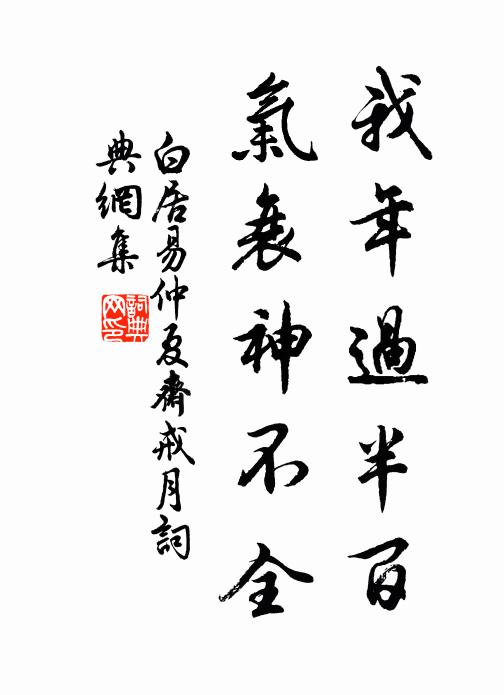 我年過半百
氣衰神不全
白居易仲夏齋戒月詞
典網集
詞典網印